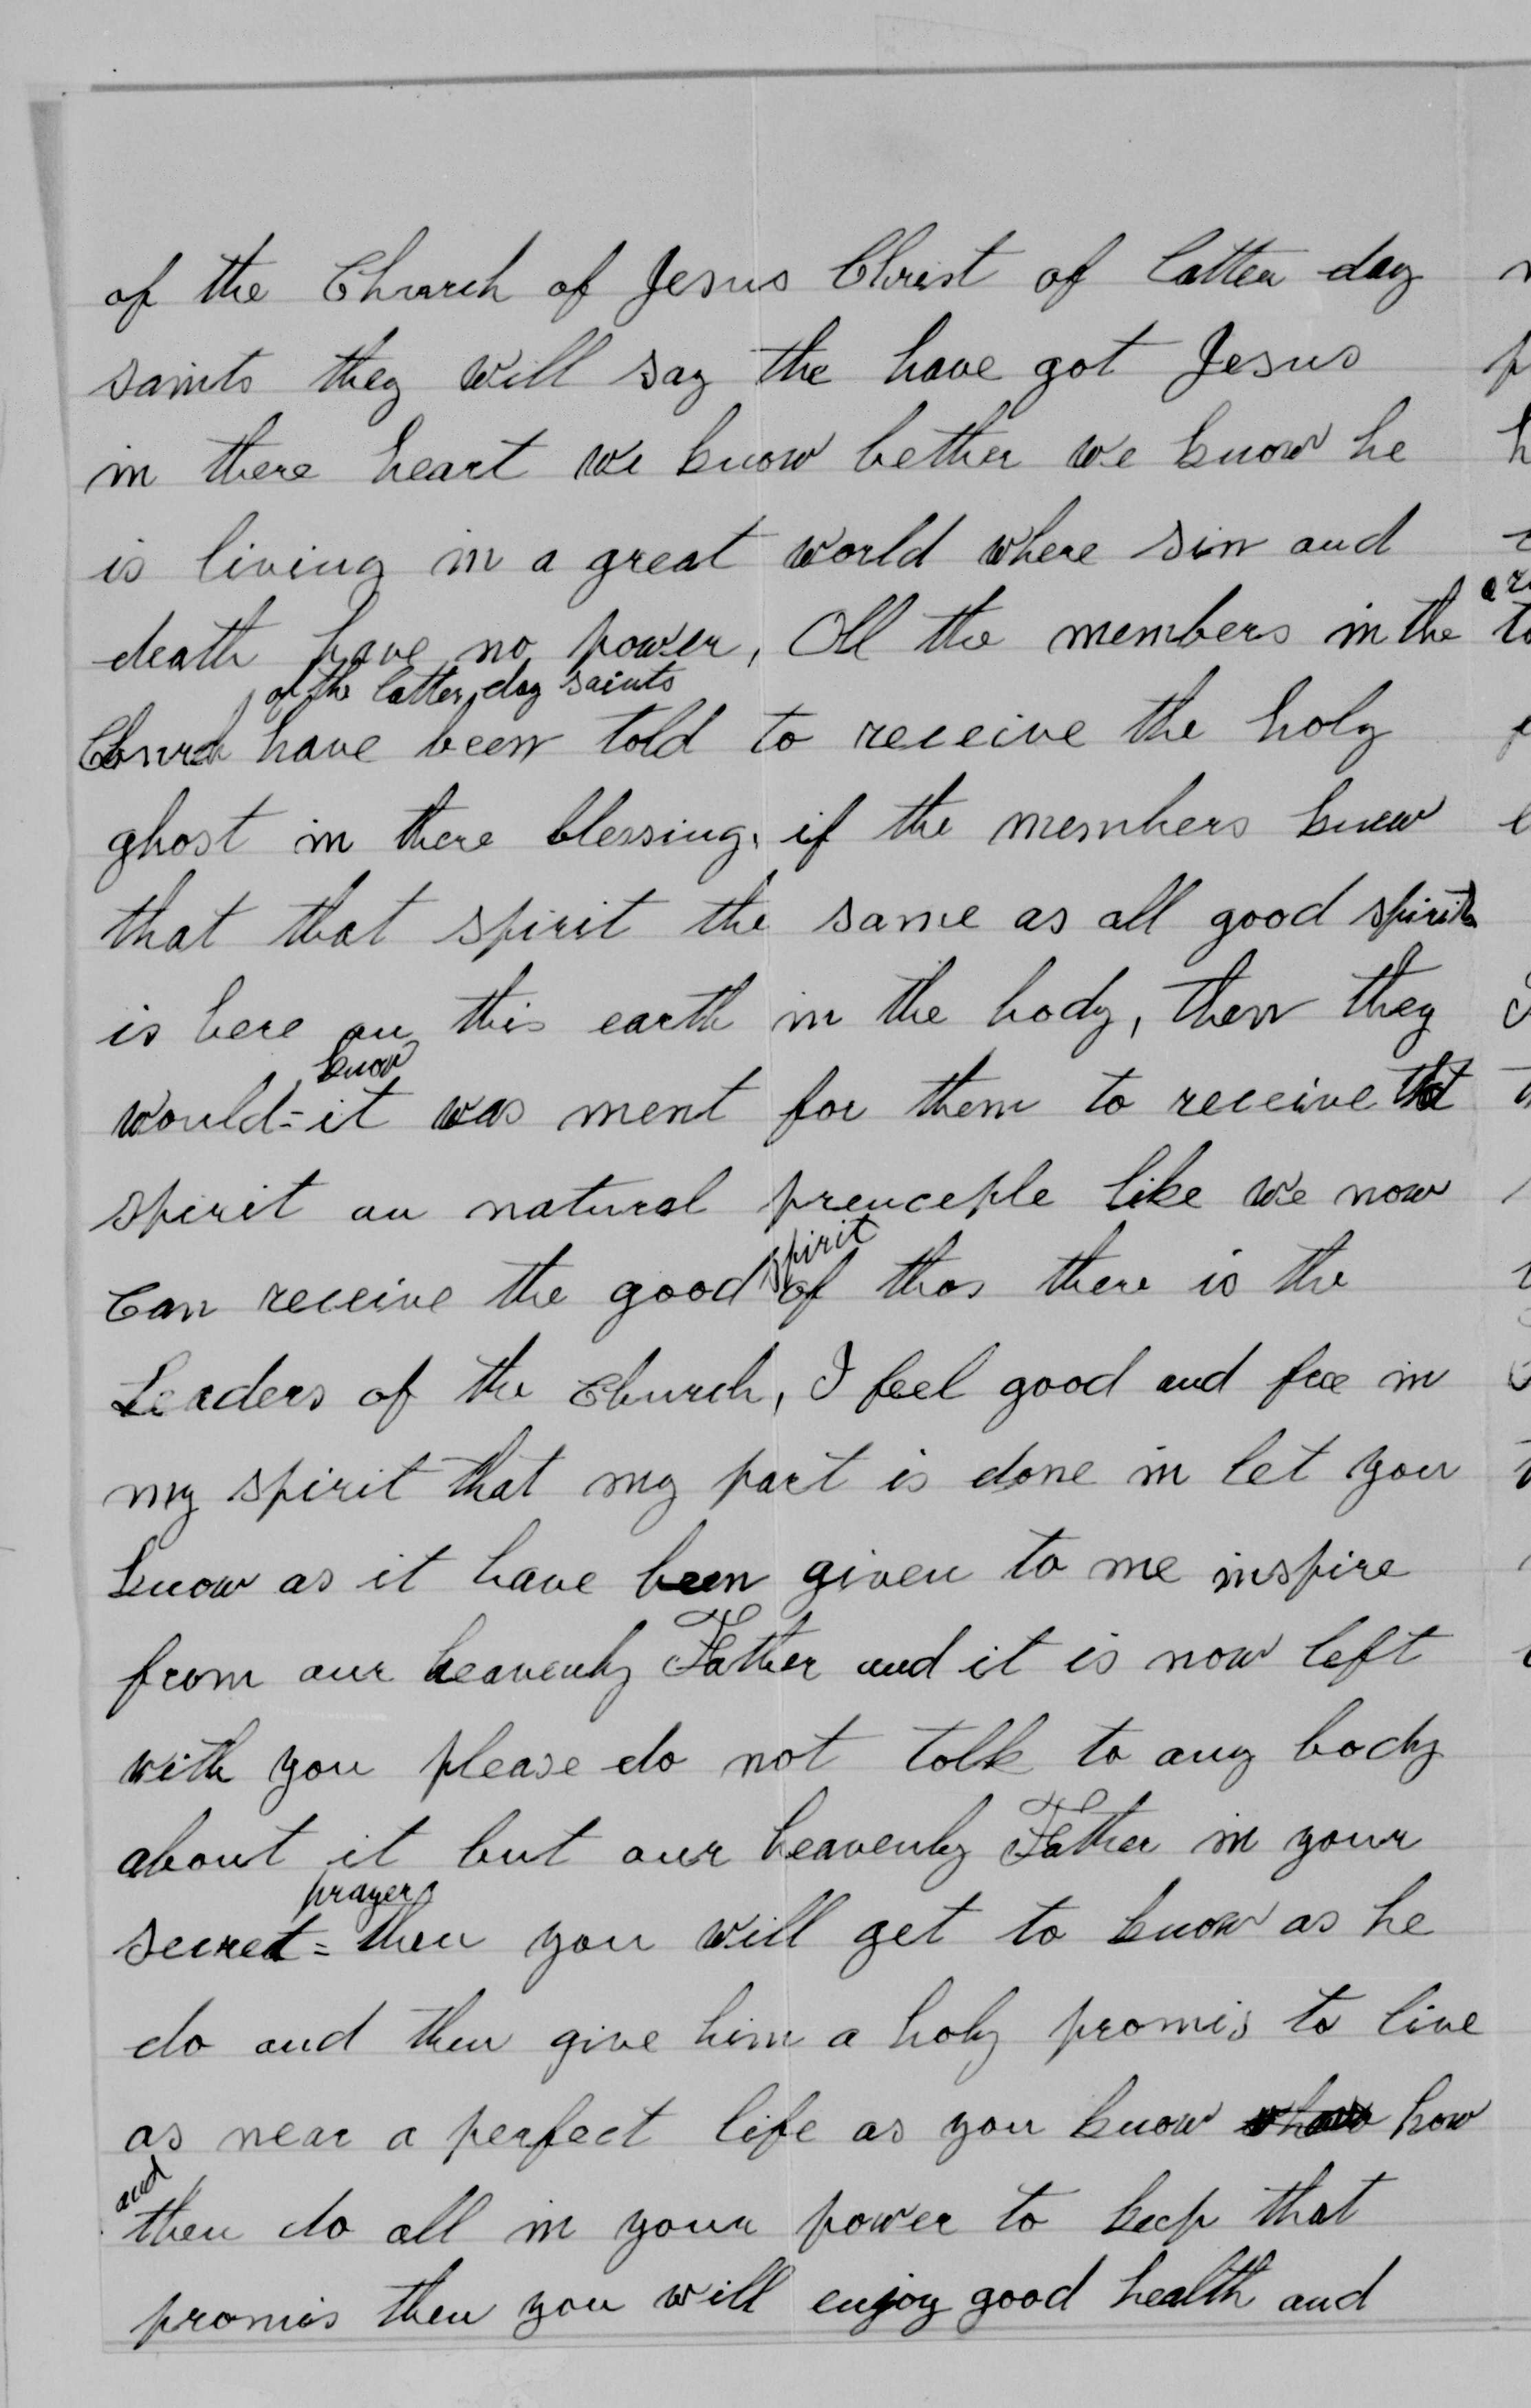 of the Church of Jesus Christ of latter day
saints they will say the have got Jesus
in there heart we know bether we know he
is living in a great world where sin and
death have no power, Oll the members in the
of the latter day saints
Church have been told to receive the holy
ghost in there blessing, if the members knew
that that spirit the same as all good spirits
is here on this earth in the body, then they
know
would = it was ment for them to receive that
spirit on natural prenceple like we now
spirit
can receive the good of thos there is the
Leaders of the Church, I feel good and free in
my spirit that my part is done in let you
know as it have been given to me inspire
from our heavenly Father and it is now left
with you please do not tolk to any body
about it but our heavenly Father in your
prayer
secret = then you will get to know as he
do and then give him a holy promis to live
as near a perfect life as you know how
and
then do all in your power to keep that
promis then you will enjoy good health and